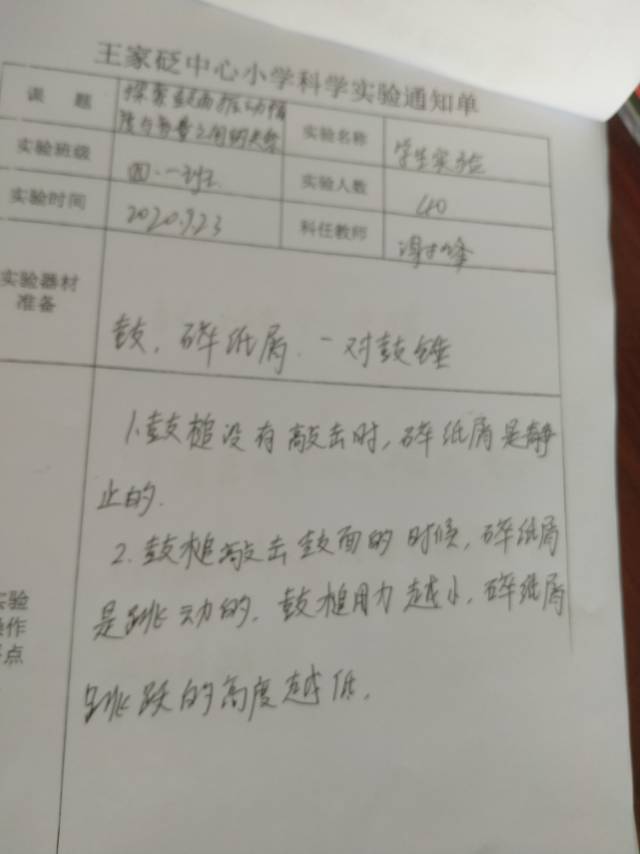 王家砭中心小学科学实验通知单
课 题 探索鼓面振动幅度与音量之间的关系 实验名称 学生实验
实验班级 四.一班 实验人数 40
实验时间 2020.9.23 科任教师
实验器材准备 鼓、碎纸屑、一对鼓锤
1.鼓槌没有敲击时,碎纸屑是静
止的.
2.鼓槌敲击鼓面的时候,碎纸屑
是跳动的.鼓槌用力越小,碎纸屑
跳跃的高度越低.
实验
操作
点